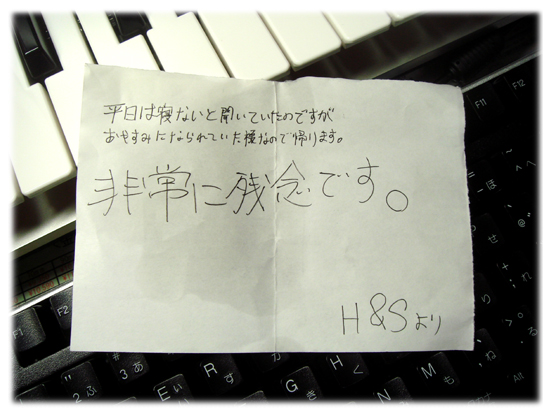 平日は寝ないと聞いていたのですが
おやすみになられていた様なので帰ります。
非常に残念です。
H&Sより
F11
F12
F1
F2
#
3あ
2ふ
E
い
R
す
G
H
N
M
Alt